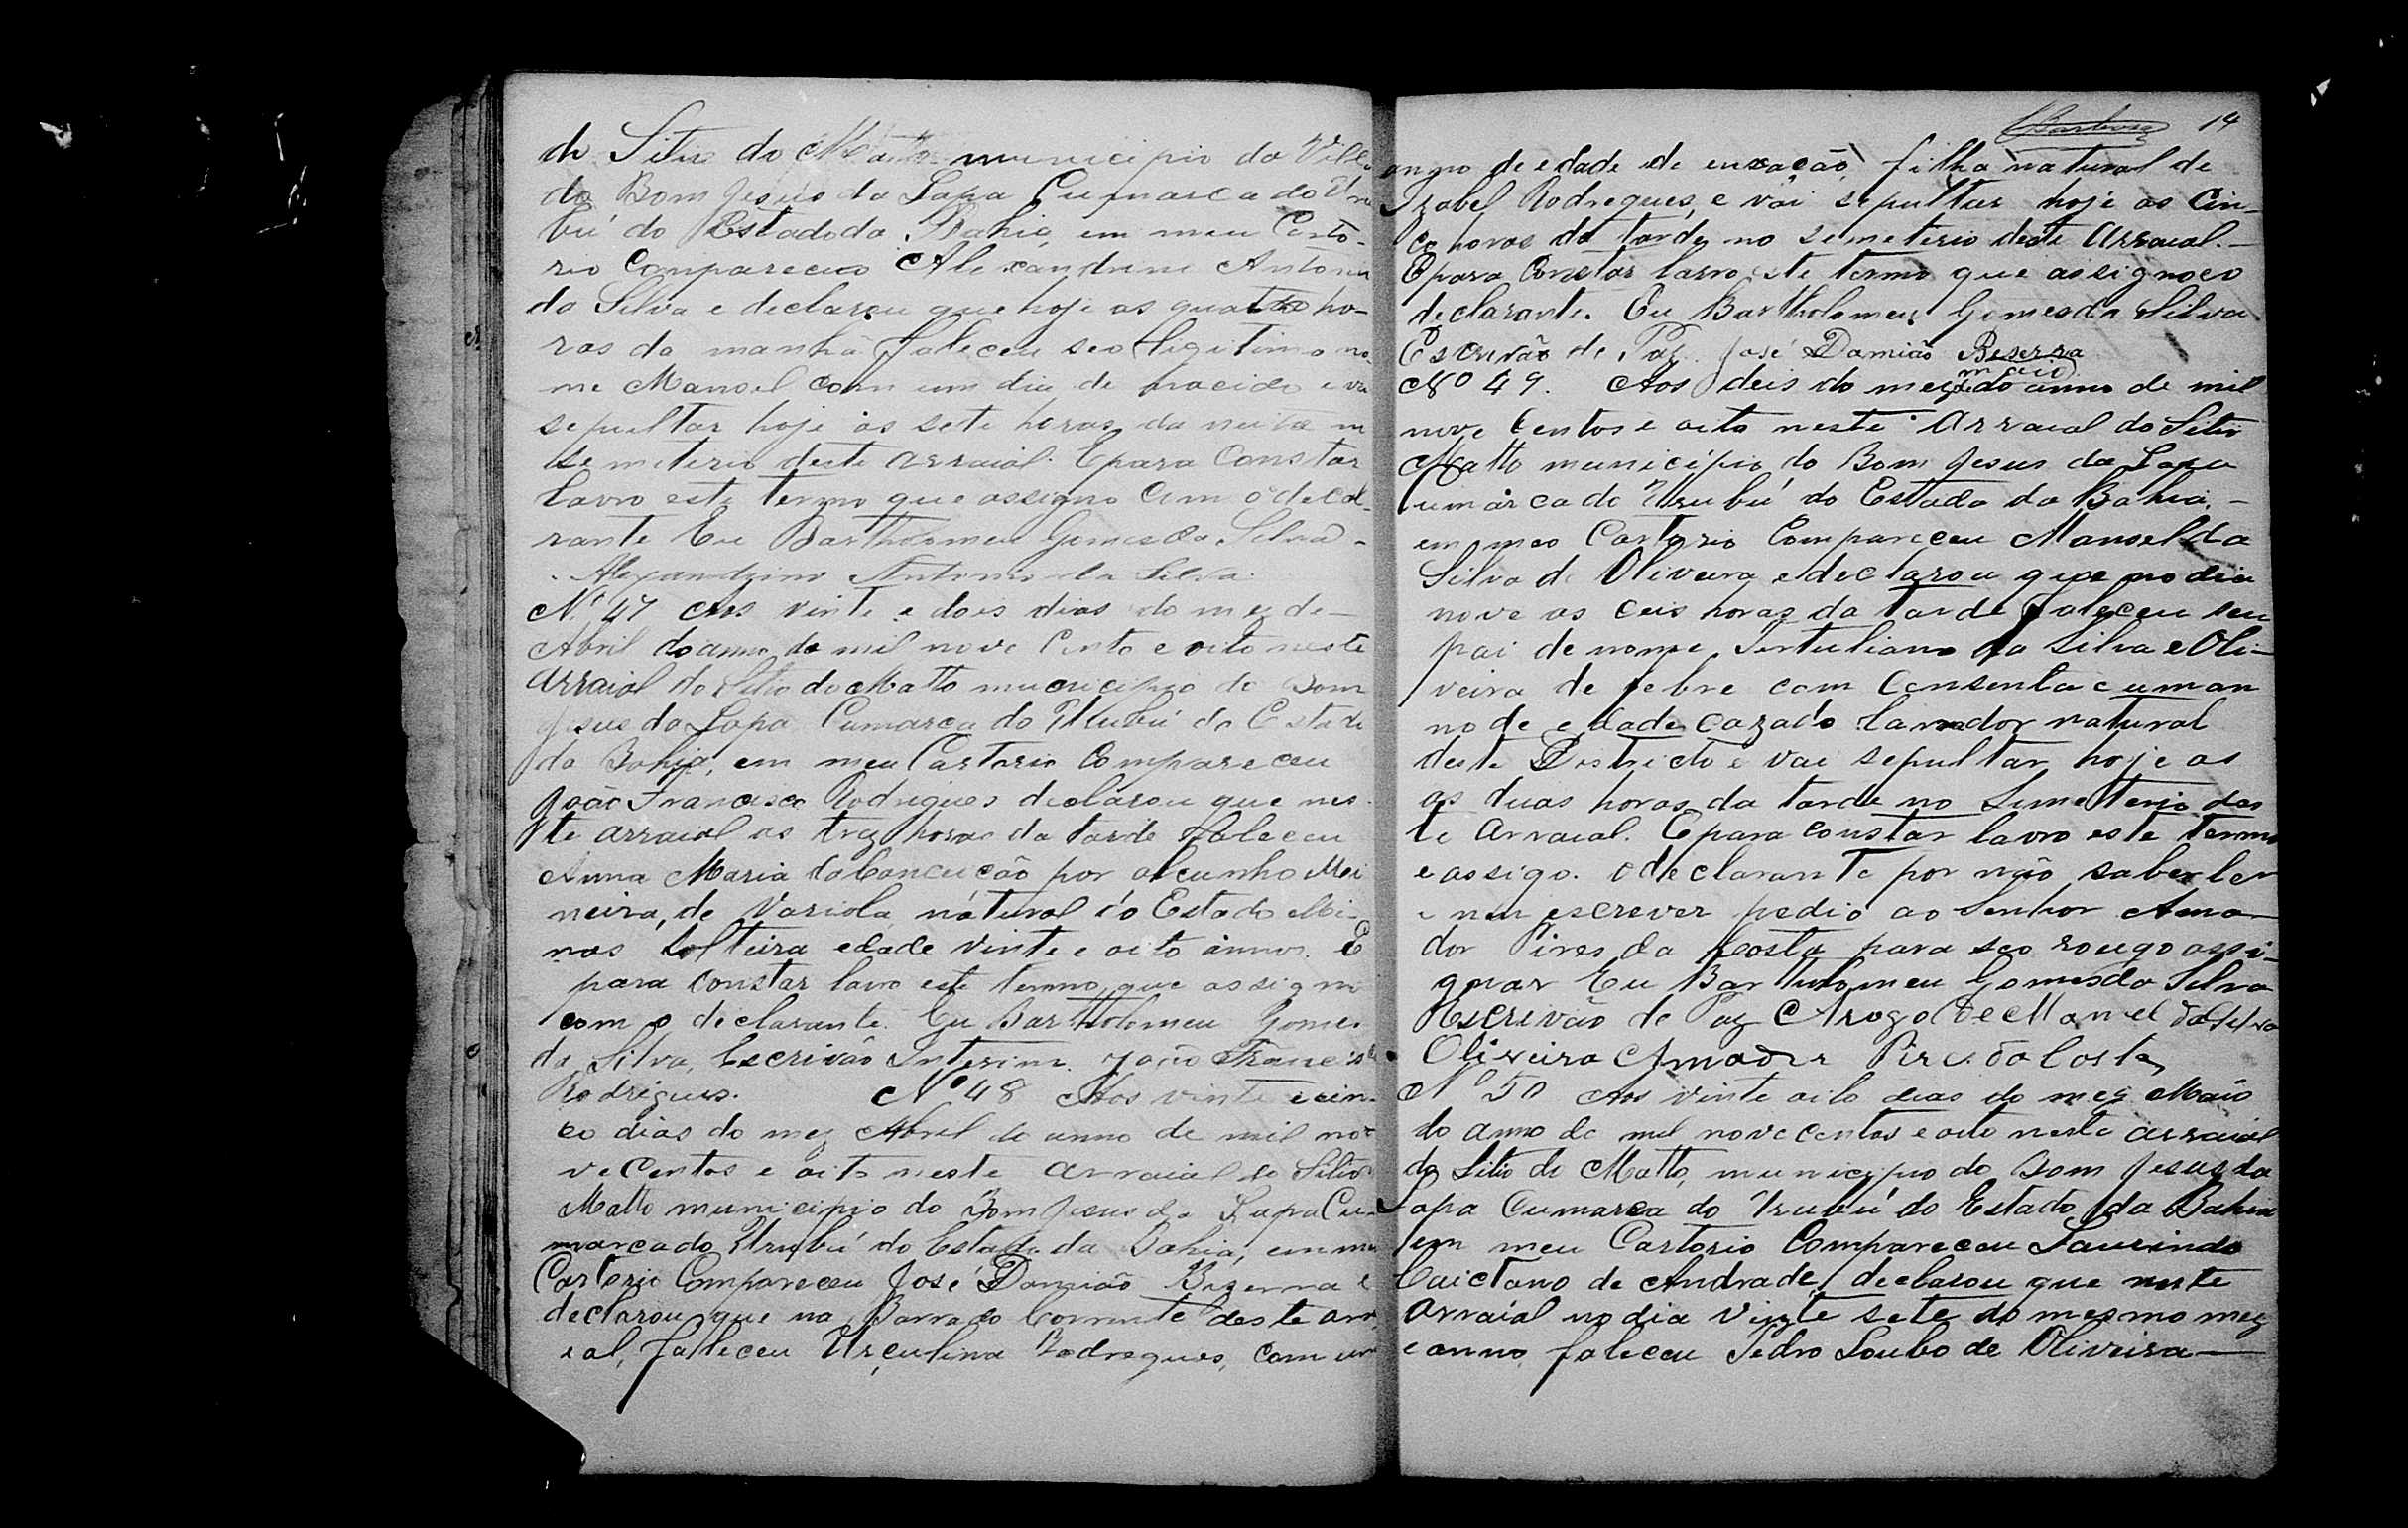 do Sitio do Matto municipio da Villa
do Bom Jesus da Lapa Cumarca do Uru
bú do Estado da Bahia, em meu Carto-
rio Compareceo Alexandrino Antonio
da Silva e declarou que hoje as quatro ho-
ras da manhã faleceu seo legitimo no
me Manoel com um dia de nacido e vai
sepultar hoje ás sete horas da noite no
Semeterio deste arraial. Epara Constar
lavro este termo que assigno com o decla-
rante Eu Bartholomeu Gomes da Silva -
Alexandrino Antonio da Silva.
Nº 47 Aos vinte e dois dias do mez de -
Abril do anno de mil nove Cento e oito neste
arraial do Sitio do Matto municipio do Bom
Jesus da Lapa Cumarca do Urubú do Estado
da Bahia, em meu Cartorio Compareceu
João Francisco Rodrigues declarou que nes-
te arraial as trez horas da tarde faleceu
Anna Maria da Conceicão por alcunho Mei
neira, de Variola, natural do Estado Mi-
nas Solteira edade vinte e oito annos. E
para constar lavro este termo, que assigno
com o declarante. Eu Bartholomeu Gomes
da Silva, Escrivão Interino. João Francisco
Rodrigues. Nº 48 Aos vinte e cin-
co dias do mez Abril do anno de mil no-
ve Centos e oito neste arraial do Sitio
Matto municipio do Bom Jesus da Lapa Cu-
marca do Urubú do Estado da Bahia, em meu
Cartorio Compareceu José Damião Bizerra e
declarou que na Barra do Corrente deste arra
ial, faleceu Urçulina Rodregues, com um
Barboza 14
anno de edade de , filha natural de
Izabel Rodregues, e vai sepultar hoje as Cin-
co horas da tarde no semeterio deste Arraial. -
Epara Constar lavro este termo que assigno co
declarante. Eu Bartholomeu Gomes da Silva
Escrivão de Paz. José Damião Beserra
Nº 49. Aos deis do mez de maio do anno de mil
nove Centos e oito neste Arraial do Sitio
Matto municipio do Bom Jesus da Lapa
Cumarca do Urubú do Estado da Bahia, -
em meo Cartorio Compareceu Manoel da
Silva de Oliveira e declarou que no dia
nove as ceis horas da tarde faleceu seu
pai de nome Tertuliano da Silva e Oli-
veira de febre com Consenta e um an
no de edade cazado lavrador natural
deste Districto e vai sepultar hoje as
as duas horas da tarde no Simeterio des
te Arraial. Epara constar lavro este termo
e assigo. o declarante por não saber ler
e nen escrever pedio ao Senhor Ama-
dor Pires da Costa para seo rougo assi-
gnar Eu Bartholomeu Gomes da Silva
Escrivão de Paz Arogo de Manoel da Silva
Oliveira Amador Pires da Costa
Nº 50 Aos vinte oito deas do mez Maio
do anno de mil novecentos e oito neste arraial
do Sitio do Matto, municipio do Bom Jesus da
Lapa Cumarca do Urubú do Estado da Bahia
em meu Cartorio Compareceu Laurindo
Caictano de Andrade, declarou que neste
arraial no dia vinte sete do mesmo mez
e anno, faleceu Pedro Loubo de Oliveira -